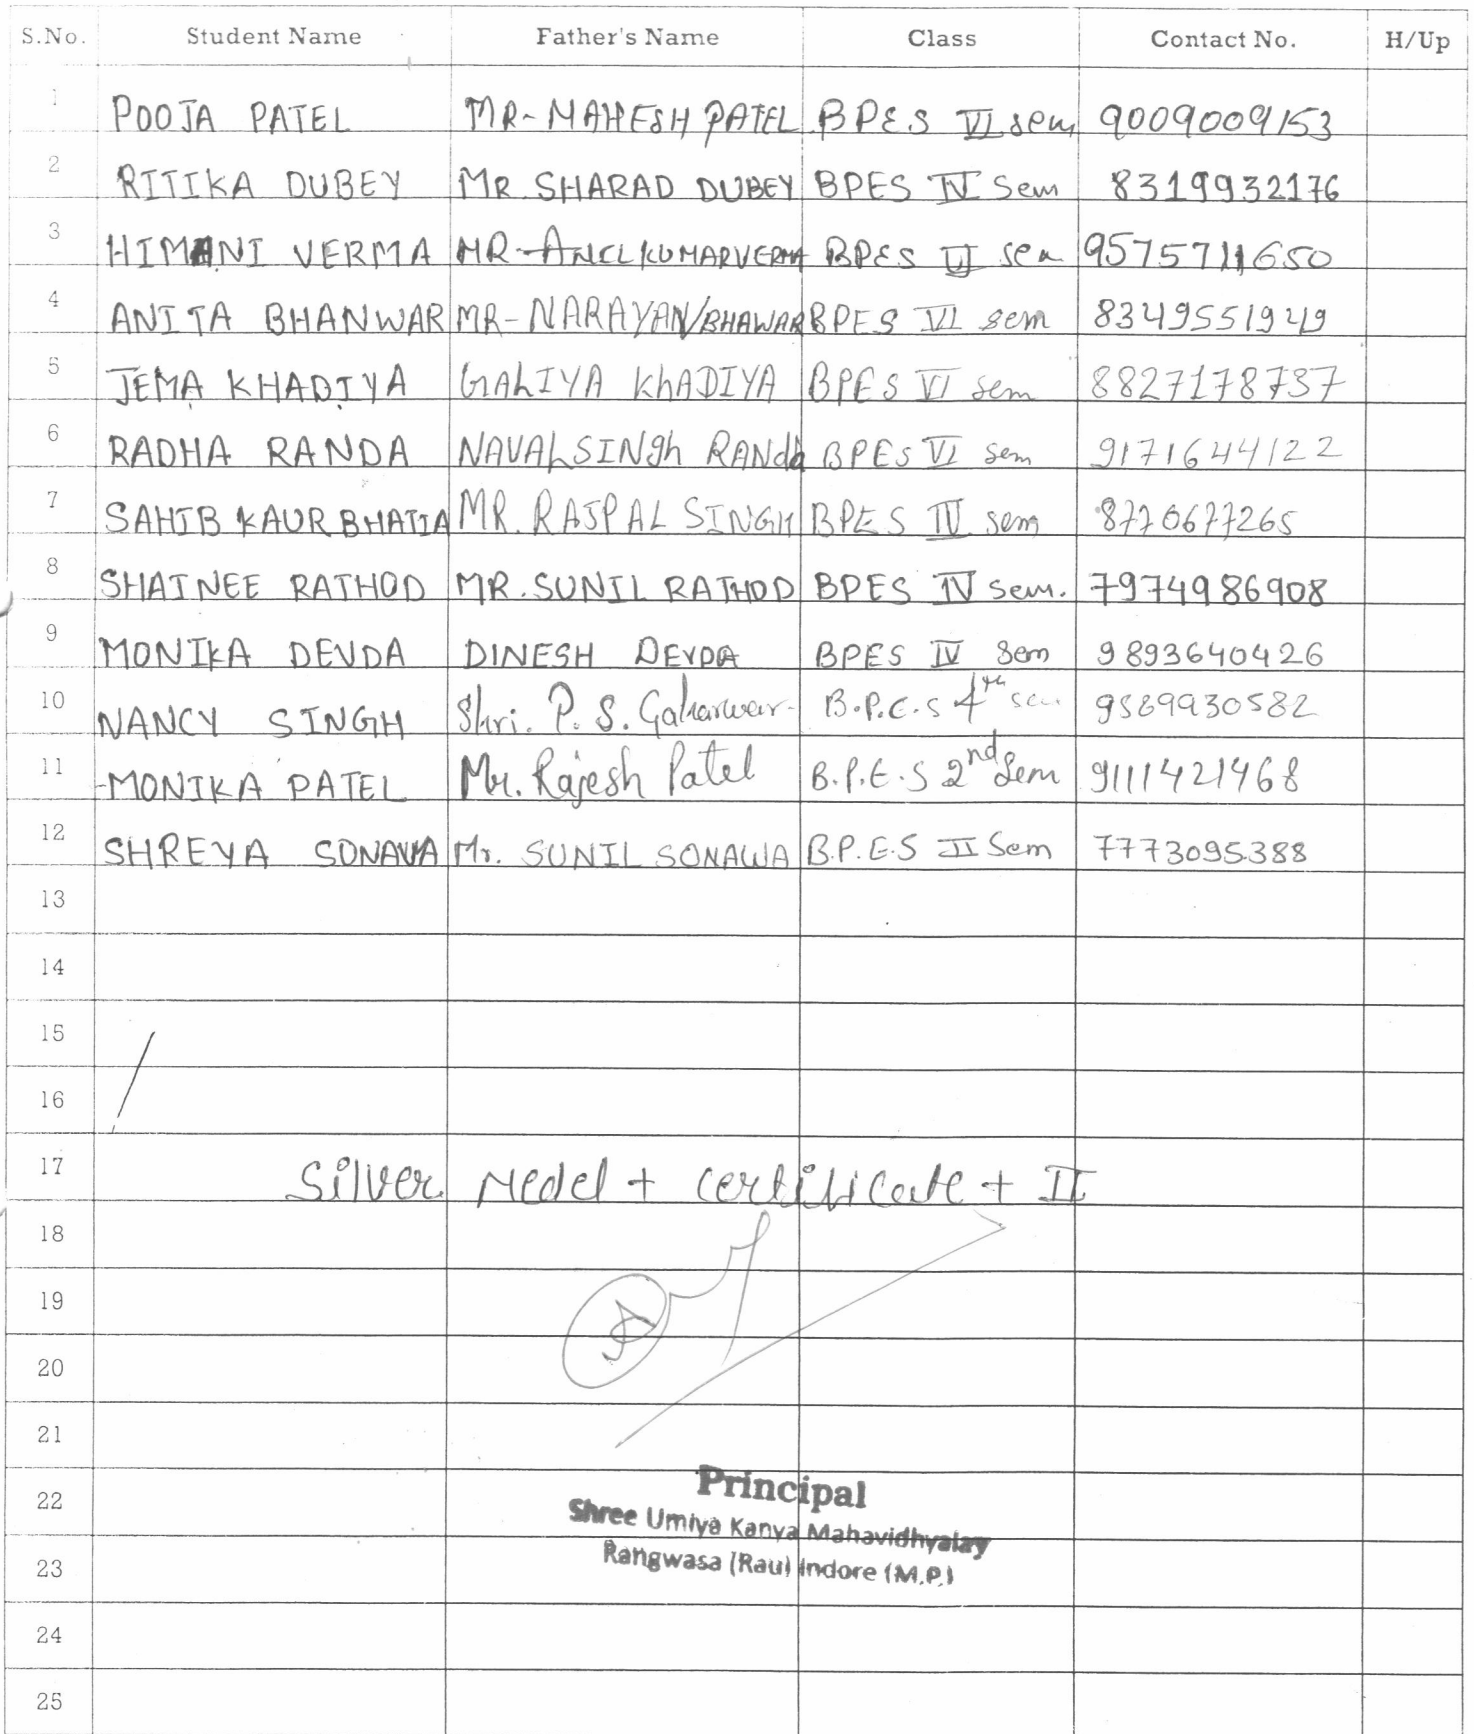 S.No. Student Name Father's Name Class Contact No. H/Up
1 POOJA PATEL MR-MAHESH PATEL BPES VI sem 9009009153
2 RITIKA DUBEY MR SHARAD DUBEY BPES IV Sem 8319932176
3 HIMANI VERMA MR-ANIL KUMARVERMA BPES VI sem 9575711650
4 ANITA BHANWAR MR-NARAYAN/BHAWAR BPES VI sem 8349551949
5 JEMA KHADIYA GALIYA KhADIYA BPES VI sem 8827178737
6 RADHA RANDA NAVALSINgh RANda BPES VI sem 9171644122
7 SAHIB KAUR BHATIA MR. RAJPAL SINGH BPES IV sem 8770677265
8 SHAINEE RATHOD MR. SUNIL RATHOD BPES IV Sem. 7974986908
9 MONIKA DEVDA DINESH DEVDA BPES IV Sem 9893640426
10 NANCY SINGH Shri. P. S. Gaharwar B.P.E.S 4th sem 9589930582
11 MONIKA PATEL Mr. Rajesh Patel B.P.E.S 2nd Sem 9111421468
12 SHREYA SONAWA Mr. SUNIL SONAWA B.P.E.S II Sem 7773095388
13
14
15
16
17 Silver Medel + certificate + II
18
19
20
21
22 Principal
Shree Umiya Kanya Mahavidhyalay
23 Rangwasa (Rau) Indore (M.P.)
24
25